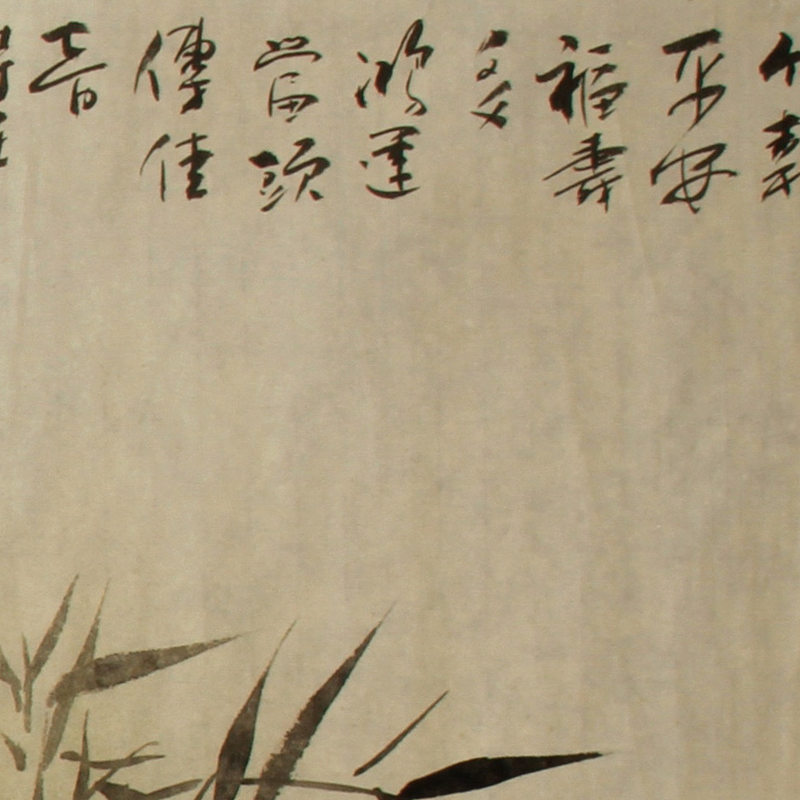 竹報
平安
福壽
多
鴻運
當頭
傳佳
音